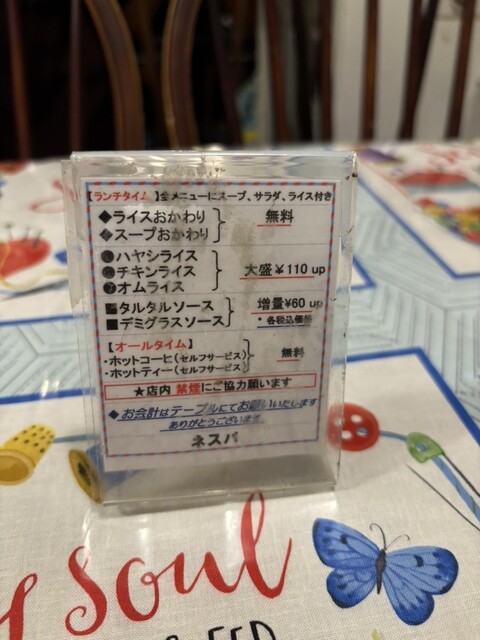 【ランチタイム】全メニューにスープ、サラダ、ライス付き
◆ライスおかわり
◆スープおかわり
無料
ハヤシライス
チキンライス
オムライス
大盛¥110 up
タルタルソース
デミグラスソース
増量¥60 up
・各税込価格
【オールタイム】
・ホットコーヒ(セルフサービス)
・ホットティー(セルフサービス)
無料
★店内 禁煙にご協力願います
◆お会計はテーブルにてお願いいたします
ありがとうございます
ネスパ
Soul